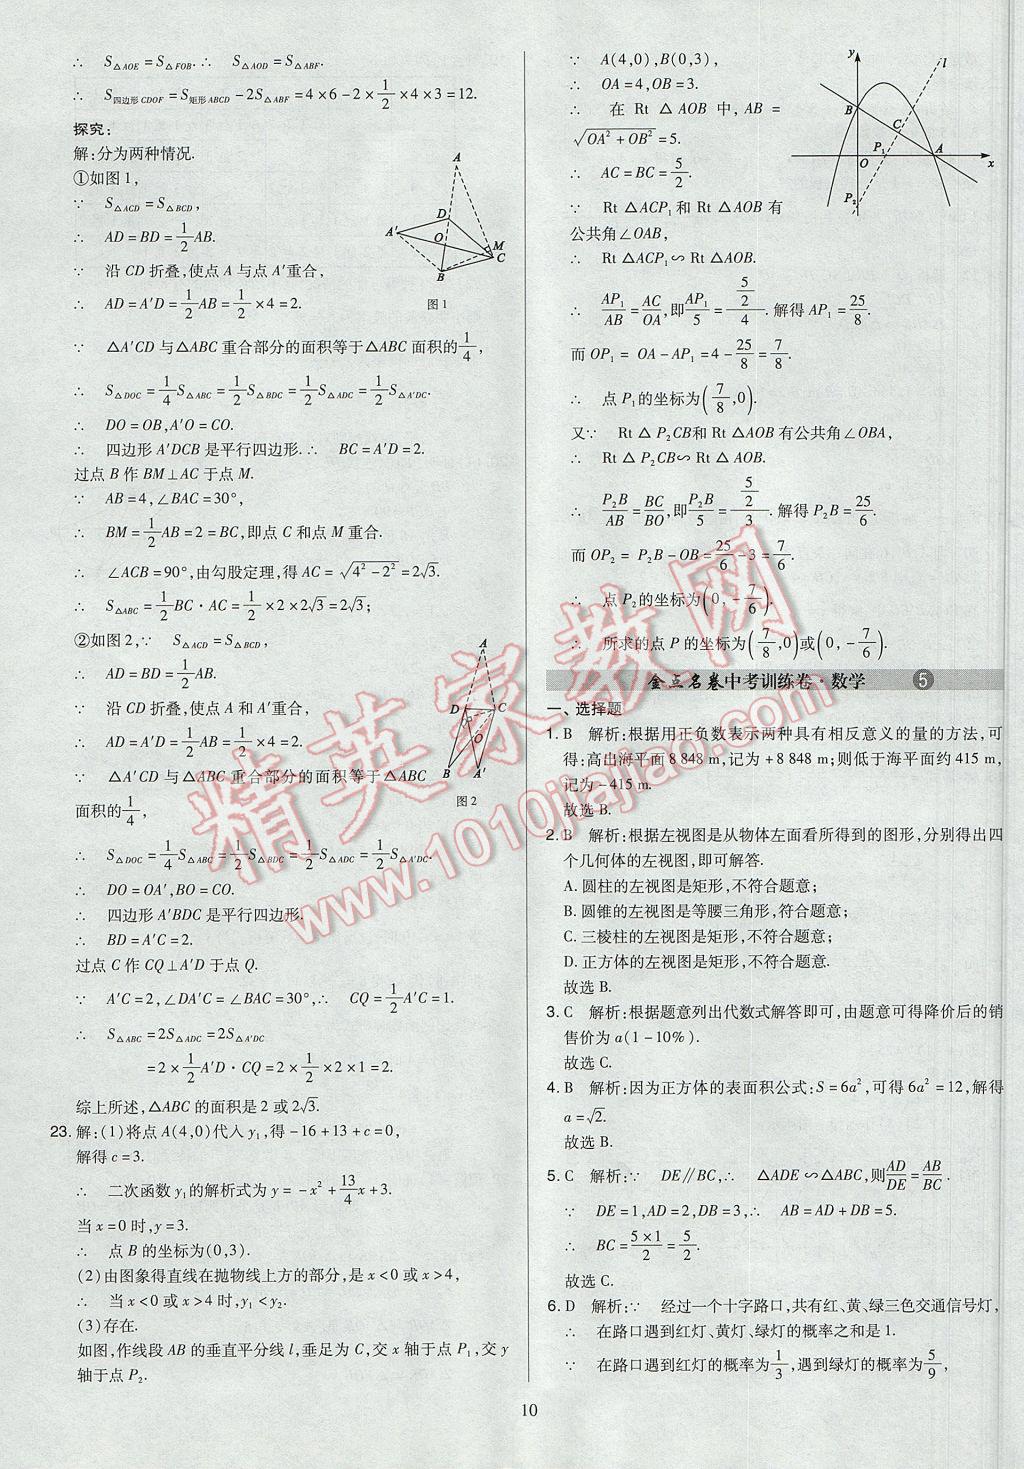 ∴ S△AOE=S△FOB.∴ S△AOD=S△ABF.
∴ S四边形CDOF=S矩形ABCD-2S△ABF=4×6-2×1/2×4×3=12.
探究:
解:分为两种情况.
①如图1,
∵ S△ACD=S△BCD,
∴ AD=BD=1/2AB.
∵ 沿CD折叠,使点A与点A′重合,
∴ AD=A′D=1/2AB=1/2×4=2.
∵ △A′CD与△ABC重合部分的面积等于△ABC面积的1/4,
∴ S△DOC=1/4S△ABC=1/2S△BDC=1/2S△ADC=1/2S△A′DC.
∴ DO=OB,A′O=CO.
∴ 四边形A′DCB是平行四边形.∴ BC=A′D=2.
过点B作BM⊥AC于点M.
∵ AB=4,∠BAC=30°,
∴ BM=1/2AB=2=BC,即点C和点M重合.
∴ ∠ACB=90°,由勾股定理,得AC=√(4²-2²)=2√3.
∴ S△ABC=1/2BC·AC=1/2×2×2√3=2√3;
②如图2,∵ S△ACD=S△BCD,
∴ AD=BD=1/2AB.
∵ 沿CD折叠,使点A和A′重合,
∴ AD=A′D=1/2AB=1/2×4=2.
∵ △A′CD与△ABC重合部分的面积等于△ABC
面积的1/4,
∴ S△DOC=1/4S△ABC=1/2S△BDC=1/2S△ADC=1/2S△A′DC.
∴ DO=OA′,BO=CO.
∴ 四边形A′BDC是平行四边形.
∴ BD=A′C=2.
过点C作CQ⊥A′D于点Q.
∵ A′C=2,∠DA′C=∠BAC=30°,∴ CQ=1/2A′C=1.
∴ S△ABC=2S△ADC=2S△A′DC
=2×1/2A′D·CQ=2×1/2×2×1=2.
综上所述,△ABC的面积是2或2√3.
23.解:(1)将点A(4,0)代入y₁,得-16+13+c=0,
解得c=3.
∴ 二次函数y₁的解析式为y=-x²+13/4x+3.
当x=0时,y=3.
∴ 点B的坐标为(0,3).
(2)由图象得直线在抛物线上方的部分,是x<0或x>4,
∴ 当x<0或x>4时,y₁<y₂.
(3)存在.
如图,作线段AB的垂直平分线l,垂足为C,交x轴于点P₁,交y
轴于点P₂.
A
D
A′
O
M
C
B
图1
A
D
C
Q
O
B
A′
图2
∵ A(4,0),B(0,3),
∴ OA=4,OB=3.
∴ 在Rt△AOB中,AB=
√(OA²+OB²)=5.
∴ AC=BC=5/2.
∵ Rt△ACP₁和Rt△AOB有
公共角∠OAB,
∴ Rt△ACP₁∽Rt△AOB.
∴ AP₁/AB=AC/OA,即AP₁/5=(5/2)/4.解得AP₁=25/8.
而OP₁=OA-AP₁=4-25/8=7/8.
∴ 点P₁的坐标为(7/8,0).
又∵ Rt△P₂CB和Rt△AOB有公共角∠OBA,
∴ Rt△P₂CB∽Rt△AOB.
∴ P₂B/AB=BC/BO,即P₂B/5=(5/2)/3.解得P₂B=25/6.
而OP₂=P₂B-OB=25/6-3=7/6.
∴ 点P₂的坐标为(0,-7/6).
∴ 所求的点P的坐标为(7/8,0)或(0,-7/6).
y
l
B
C
P₁
A
O
x
P₂
金点名卷中考训练卷·数学 5
一、选择题
1.B 解析:根据用正负数表示两种具有相反意义的量的方法,可
得:高出海平面8 848 m,记为+8 848 m;则低于海平面约415 m,
记为-415 m.
故选B.
2.B 解析:根据左视图是从物体左面看所得到的图形,分别得出四
个几何体的左视图,即可解答.
A.圆柱的左视图是矩形,不符合题意;
B.圆锥的左视图是等腰三角形,符合题意;
C.三棱柱的左视图是矩形,不符合题意;
D.正方体的左视图是矩形,不符合题意.
故选B.
3.C 解析:根据题意列出代数式解答即可,由题意可得降价后的销
售价为a(1-10%).
故选C.
4.B 解析:因为正方体的表面积公式:S=6a²,可得6a²=12,解得
a=√2.
故选B.
5.C 解析:∵ DE∥BC,∴ △ADE∽△ABC,则AD/DE=AB/BC.
∵ DE=1,AD=2,DB=3,∴ AB=AD+DB=5.
∴ BC=5×1/2=5/2.
故选C.
6.D 解析:∵ 经过一个十字路口,共有红、黄、绿三色交通信号灯,
∴ 在路口遇到红灯、黄灯、绿灯的概率之和是1.
∵ 在路口遇到红灯的概率为1/3,遇到绿灯的概率为5/9,
10
精英家教网
www.1010jiajiao.com